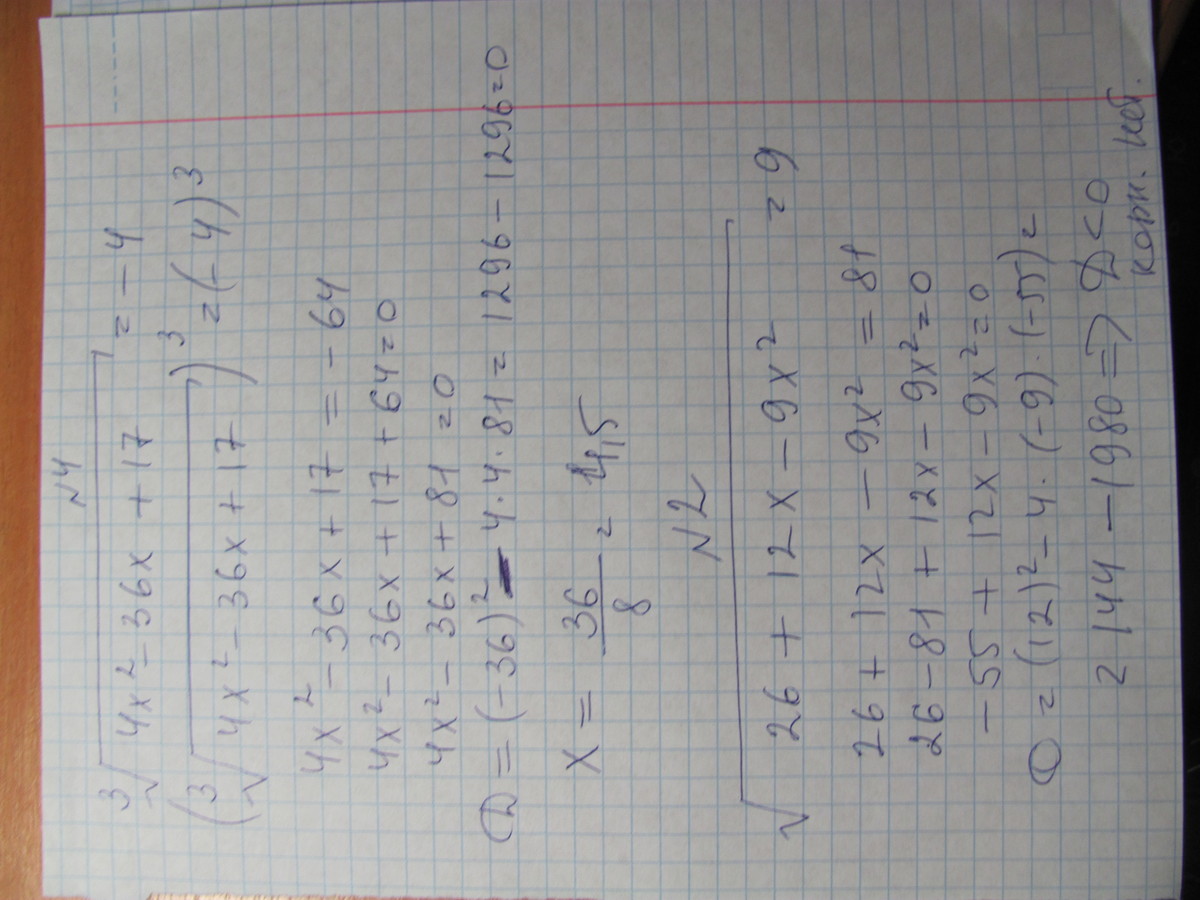 N4
³√(4x² - 36x + 17) = - 4
(³√(4x² - 36x + 17))³ = (-4)³
4x² - 36x + 17 = - 64
4x² - 36x + 17 + 64 = 0
4x² - 36x + 81 = 0
D = (-36)² - 4 · 4 · 81 = 1296 - 1296 = 0
x = 36/8 = 4,5
N2
√(26 + 12x - 9x²) = 9
26 + 12x - 9x² = 81
26 - 81 + 12x - 9x² = 0
- 55 + 12x - 9x² = 0
D = (12)² - 4 · (-9) · (-55) =
= 144 - 1980 => D < 0
корн. нет.